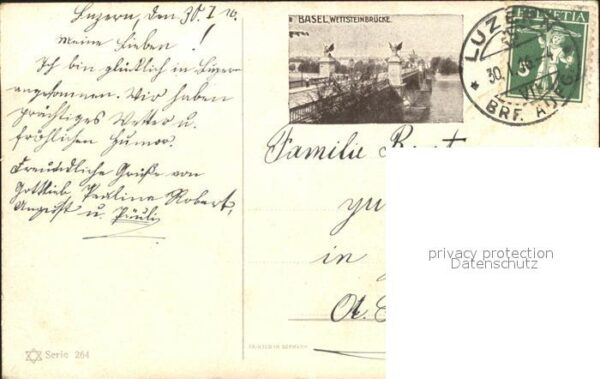 Luzern, den 30. I 16.
meine Lieben !
Ich bin glücklich in Luzern
angekommen. Wir haben
prächtiges Wetter u.
fröhlichen Humor.
Freundliche Grüße von
Gottlieb, Paulina Robert,
August u. Päuli
Serie 264
BASEL. WETTSTEINBRÜCKE.
HELVETIA
5
LUZERN
30.I.16
BRF.
Familie
in
PRINTED IN GERMANY
privacy protection
Datenschutz